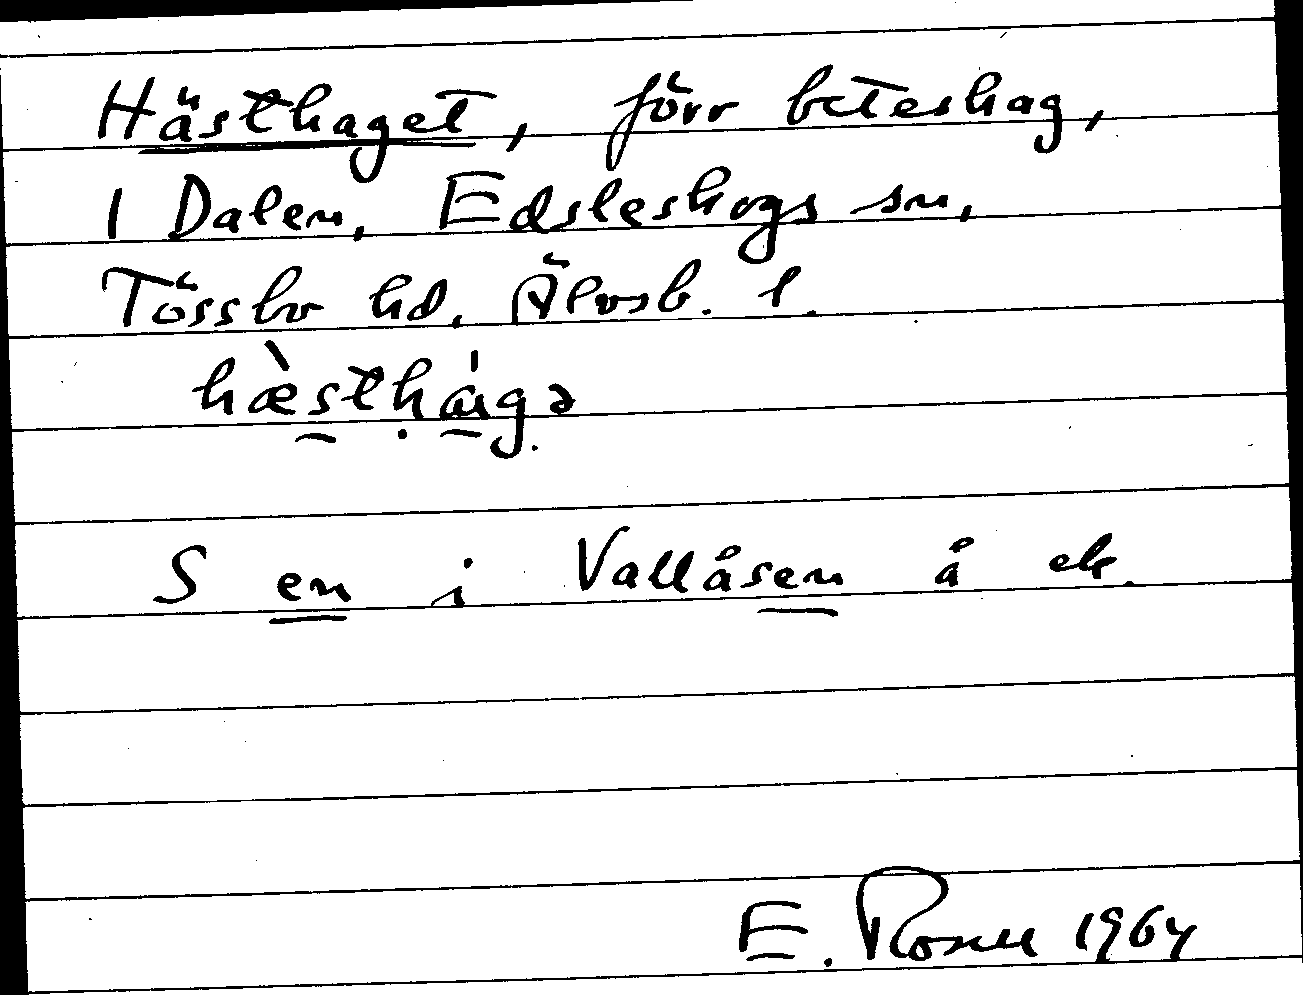 Hästhaget, förr beteshag,
1 Dalen, Edsleskogs sn,
Tössbo hd, Älvsb. l.
hæ̀sthág ə
S en i Vallåsen å ek.
E. Rosell 1964